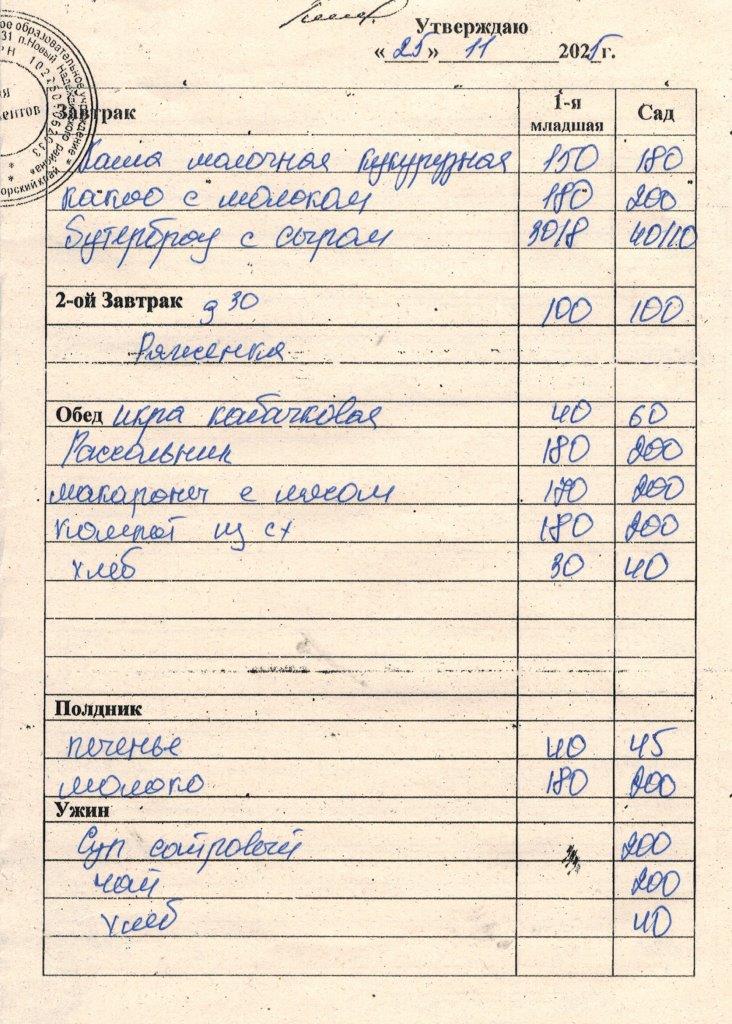 Утверждаю
«25» 11 2025г.
Завтрак 1-я младшая Сад
Каша молочная кукурузная 150 180
какао с молоком 180 200
Бутерброд с сыром 30/8 40/10
2-ой Завтрак 9 30 100 100
Ряженка
Обед икра кабачковая 40 60
Рассольник 180 200
макароны с мясом 170 200
компот из сх 180 200
хлеб 30 40
Полдник
печенье 40 45
молоко 180 200
Ужин
Суп сайровый 200
чай 200
хлеб 40